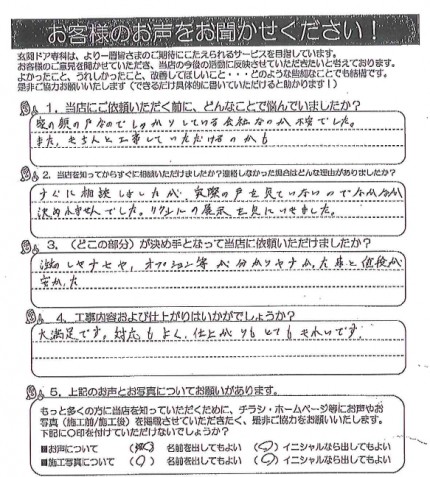 お客様のお声をお聞かせください！
玄関ドア専科は、より一層皆さまのご期待にこたえられるサービスを目指しています。
お客様のご意見を聞かせていただき、当店の今後の活動に反映させていただきたいと考えております。
よかったこと、うれしかったこと、改善してほしいこと・・・どのような些細なことでも結構です。
是非ご協力お願いします（できるだけ具体的に書いていただけると助かります！）
1．当店にご依頼いただく前に、どんなことで悩んでいましたか？
家の顔の戸なのでしっかりしている会社なのか不安でした。
また、きちんと工事していただけるのかも
2．当店を知ってからすぐに相談いただけましたか？連絡しなかった場合はどんな理由がありましたか？
すぐに相談しましたが、実際の戸を見ていないのでなかなか
決められませんでした。リクシルの展示を見にいきました。
3．（どこの部分）が決め手となって当店に依頼いただけましたか？
オプション等が分かりやすかった
安かった
4．工事内容および仕上がりはいかがでしょうか？
大満足です。対応もよく、仕上がりもとてもきれいです。
5．上記のお声とお写真についてお願いがあります。
もっと多くの方に当店を知っていただくために、チラシ・ホームページ等にお声やお
写真（施工前/施工後）を掲載させていただきたく、是非ご協力をお願いいたします。
下記に〇印を付けていただけないでしょうか？
■お声について （ ） 名前を出してもよい （〇）イニシャルなら出してもよい
■施工写真について （ ） 名前を出してもよい （〇）イニシャルなら出してもよい